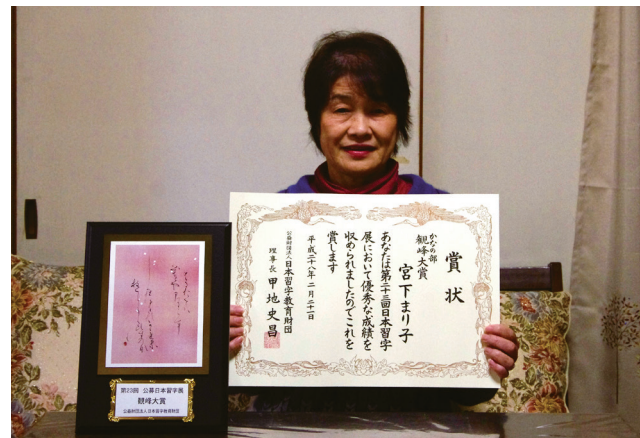 賞状
かなの部
観峰大賞
宮下まり子
あなたは第二十三回日本習字
展において優秀な成績を
収められましたのでこれを
賞します
平成二十八年二月二十一日
公益財団法人日本習字教育財団
理事長 甲地史昌
第23回 公募日本習字展
観峰大賞
公益財団法人日本習字教育財団